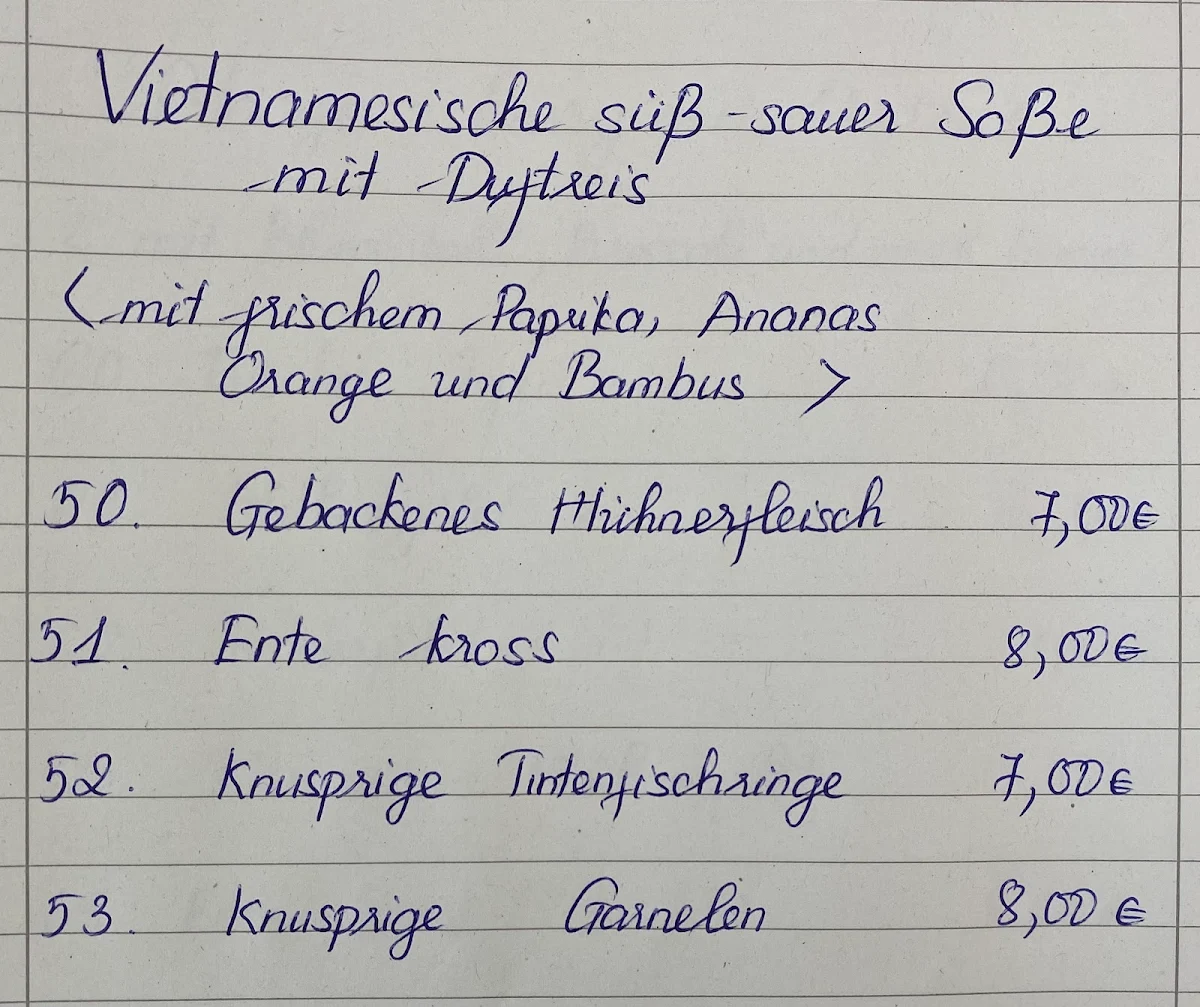 Vietnamesische süß-sauer Soße
mit Duftreis
(mit frischem Paprika, Ananas
Orange und Bambus )
50. Gebackenes Hühnerfleisch 7,00€
51. Ente kross 8,00€
52. Knusprige Tintenfischringe 7,00€
53. Knusprige Garnelen 8,00 €